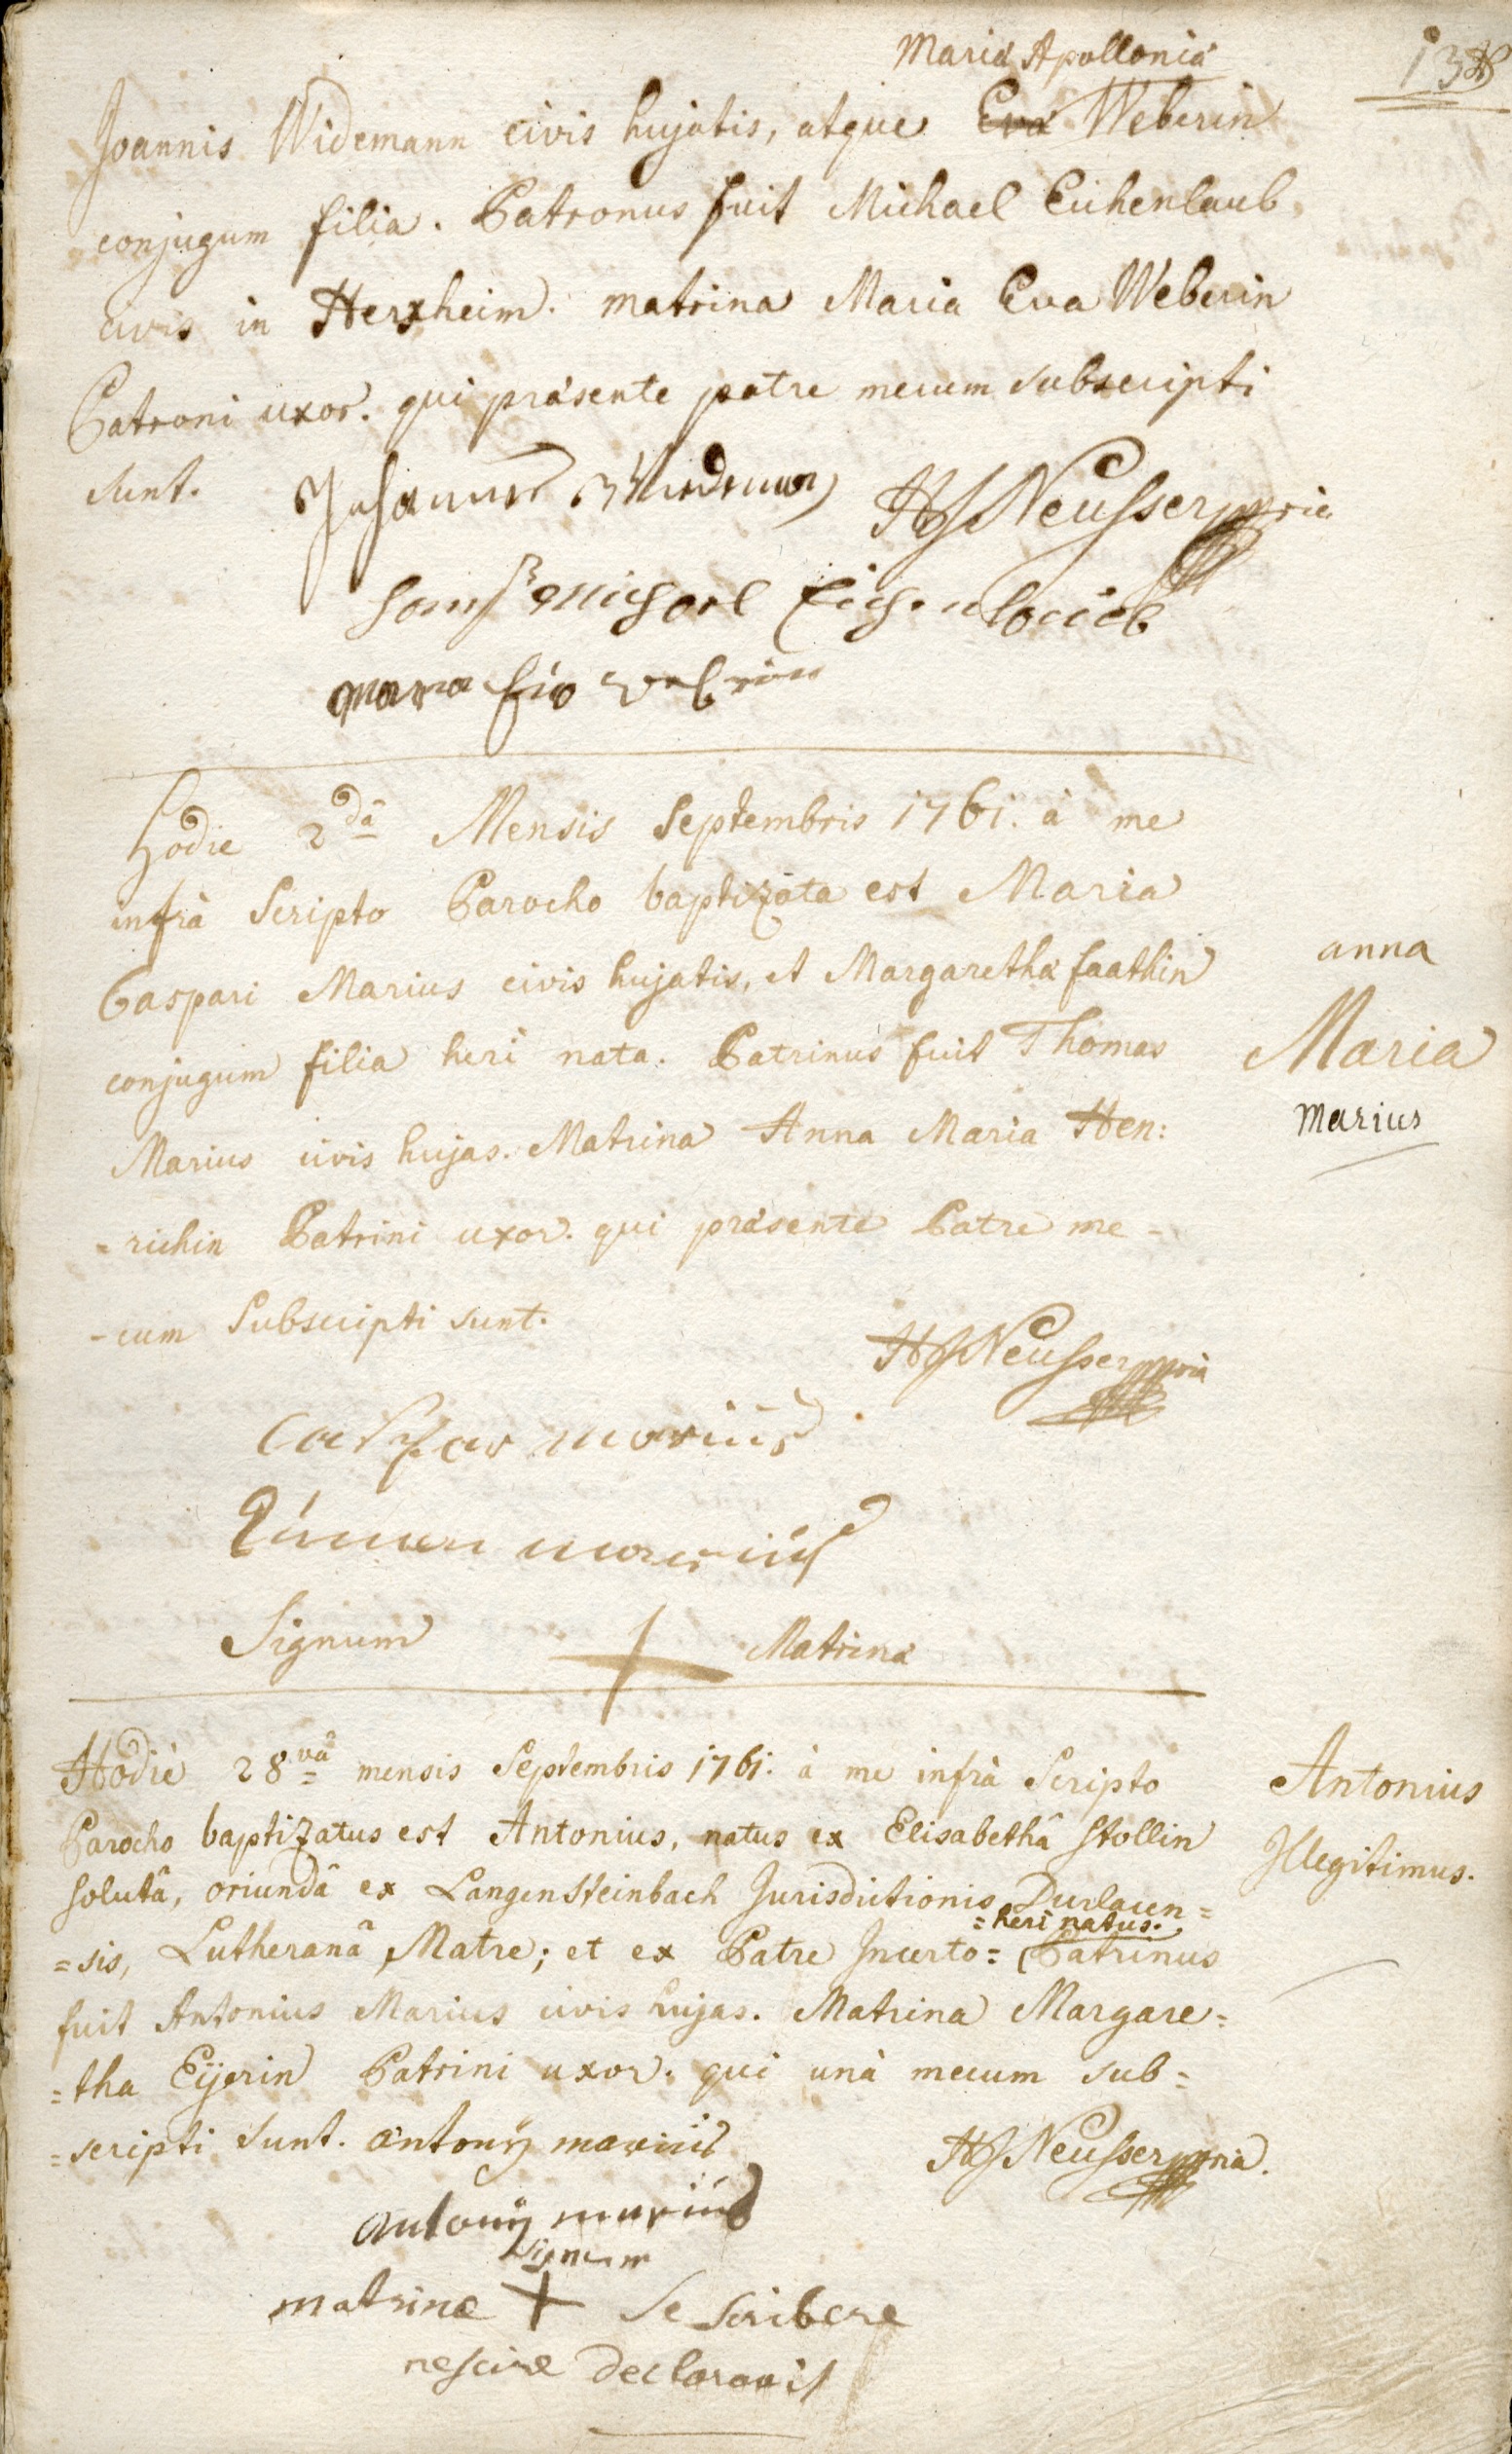 Mariä Apolloniä
Joannis Widemann civis hujatis, atque Eva Weberin
conjugum filia. Patronus fuit Michael Eichenlaub
civis in Herxheim. matrina Maria Eva Weberin
Patroni uxor. qui präsente patre mecum subscripti
sunt. Johannes Wiedeman HJ Neusser ppria
Hans Michael Eichenlaub
maria Eva weberin
Hodie 2dâ Mensis Septembris 1761. à me
infrà Scripto Parocho baptizata est Maria
anna
Caspari Marius civis hujatis, et Margarethä faathin
Maria
conjugum filia heri nata. Patrinus fuit Thomas
Marius
Marius civis hujas. Matrina Anna Maria Hen:
=richin Patrini uxor. qui präsente Patre me-
-cum Subscripti sunt.
HJ Neusser ppria
Caspar marius
marius
Signum + Matrinä
Hodie 28vâ mensis Septembris 1761. à me infrà Scripto
Antonius
Parocho baptizatus est Antonius, natus ex Elisabethâ Stollin
Illegitimus.
solutâ, oriundâ ex Langensteinbach Jurisdictionis Durlacen=
=heri natus.
=sis, Lutheranâ Matre; et ex Patre Incerto= Patrinus
fuit Antonius Marius civis hujas. Matrina Margare=
=tha Eÿerin Patrini uxor. qui unà mecum sub=
=scripti sunt. antonÿ marius HJ Neusser ppria.
antonÿ marius
signum
matrinae + se scribere
nescire declaravit